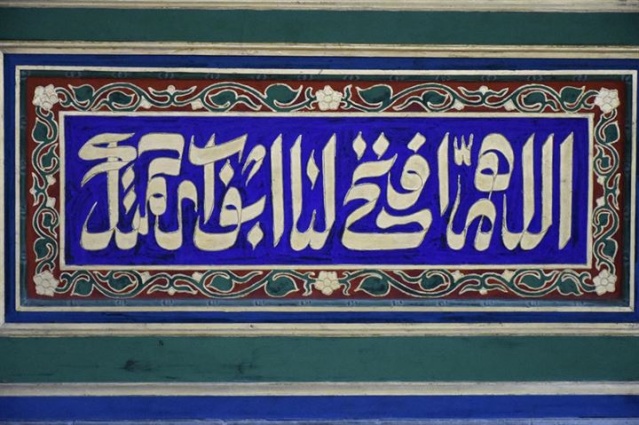 اللهمّ افتح لنا ابواب رحمتك